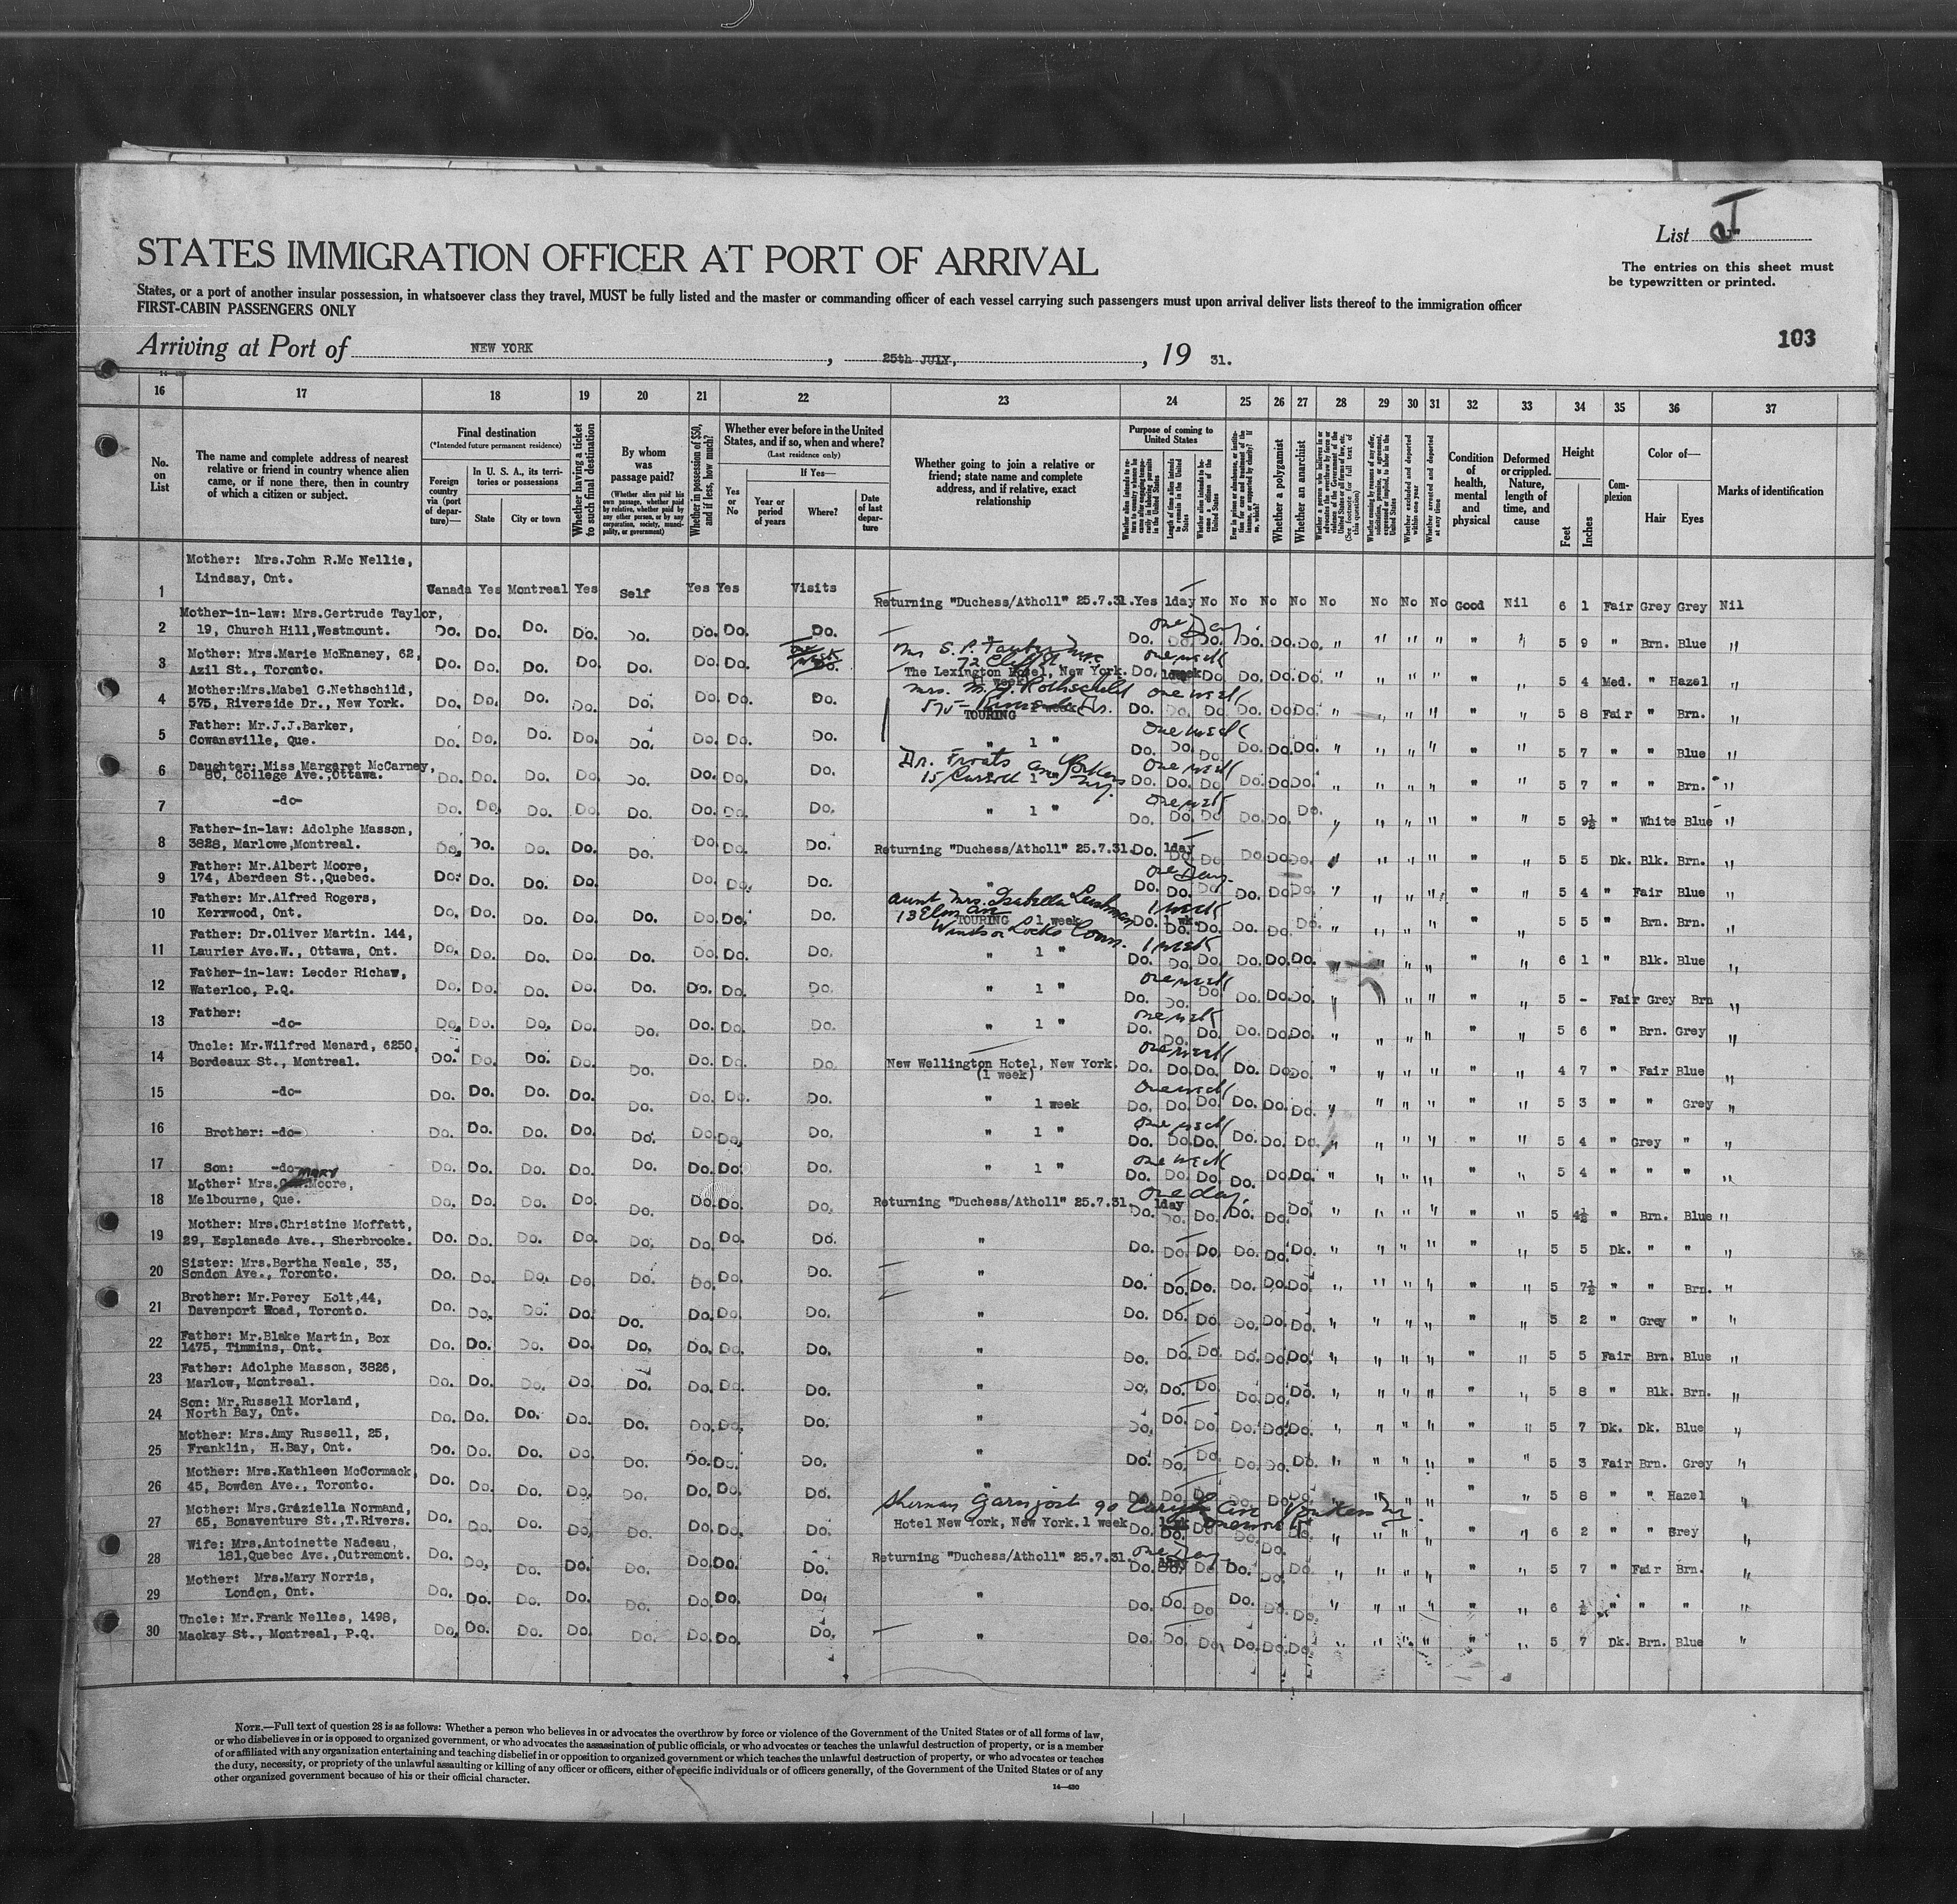 List
STATES IMMIGRATION OFFICER AT PORT OF ARRIVAL
The entries on this sheet must
be typewritten or printed.
States, or a port of another insular possession, in whatsoever class they travel, MUST be fully listed and the master or commanding officer of each vessel carrying such passengers must upon arrival deliver lists thereof to the immigration officer
FIRST-CABIN PASSENGERS ONLY
103
Arriving at Port of NEW YORK, 25th JULY, 19 31.
16 17 18 19 20 21 22 23 24 25 26 27 28 29 30 31 32 33 34 35 36 37
No. on List
The name and complete address of nearest relative or friend in country whence alien came, or if none there, then in country of which a citizen or subject.
Final destination
(*Intended future permanent residence)
Foreign country via (port of departure)—
In U. S. A., its territories or possessions
State
City or town
Whether having a ticket to such final destination
By whom was passage paid?
(Whether alien paid his own passage, whether paid by relative, whether paid by any other person, or by any corporation, society, municipality, or government)
Whether in possession of $50, and if less, how much?
Whether ever before in the United States, and if so, when and where?
(Last residence only)
Yes or No
If Yes—
Year or period of years
Where?
Date of last departure
Whether going to join a relative or friend; state name and complete address, and if relative, exact relationship
Purpose of coming to United States
Length of time alien intends to remain in the United States
Whether alien intends to become a citizen of the United States
Whether a polygamist
Whether an anarchist
(See footnote for full text of this question)
Whether excluded and deported within one year
Whether arrested and deported at any time
Condition of health, mental and physical
Deformed or crippled. Nature, length of time, and cause
Height
Feet
Inches
Complexion
Color of—
Hair
Eyes
Marks of identification
1 Mother: Mrs.John R.Mc Nellie,
Lindsay, Ont. Canada Yes Montreal Yes Self Yes Yes Visits Returning "Duchess/Atholl" 25.7.31. Yes 1day No No No No No No No No Good Nil 6 1 Fair Grey Grey Nil
2 Mother-in-law: Mrs.Gertrude Taylor,
19, Church Hill,Westmount. Do. Do. Do. Do. Do. Do. Do. Do. one Day Do. Do. Do. Do. Do. Do. " " " " " " 5 9 " Brn. Blue "
3 Mother: Mrs.Marie McEnaney, 62,
Azil St., Toronto. Do. Do. Do. Do. Do. Do. Do. Do. The Lexington Hotel, New York. (1 week) one week Do. Do. Do. Do. Do. " " " " " " 5 4 Med. " Hazel "
4 Mother:Mrs.Mabel G.Nethschild,
575, Riverside Dr., New York. Do. Do. Do. Do. Do. Do. Do. Do. Mrs. M. G. Rothschild
575 Riverside Dr.
TOURING 1 week one week Do. Do. Do. Do. Do. Do. " " " " " " 5 8 Fair " Brn. "
5 Father: Mr.J.J.Barker,
Cowansville, Que. Do. Do. Do. Do. Do. Do. Do. Do. " 1 " One week Do. Do. Do. Do. Do. Do. " " " " " " 5 7 " " Blue "
6 Daughter: Miss Margaret McCarney,
80, College Ave.,Ottawa. Do. Do. Do. Do. Do. Do. Do. Do. " 1 " one week Do. Do. Do. Do. Do. Do. " " " " " " 5 7 " " Brn. "
7 -do- Do. Do. Do. Do. Do. Do. Do. Do. " 1 " one week Do. Do. Do. Do. Do. Do. " " " " " " 5 9½ " White Blue "
8 Father-in-law: Adolphe Masson,
3828, Marlowe,Montreal. Do. Do. Do. Do. Do. Do. Do. Do. Returning "Duchess/Atholl" 25.7.31. Do. 1day Do. Do. Do. Do. Do. " " " " " 5 5 Dk. Blk. Brn. "
9 Father: Mr.Albert Moore,
174, Aberdeen St.,Quebec. Do. Do. Do. Do. Do. Do. Do. " one Day. Do. Do. Do. Do. Do. Do. " " " " " " 5 4 " Fair Blue "
10 Father: Mr.Alfred Rogers,
Kerrwood, Ont. Do. Do. Do. Do. Do. Do. Do. Do. aunt Mrs. Isabella
13 Elm Ave
TOURING 1 week
Windsor Locks Conn. 1 week Do. 1 wk. Do. Do. Do. Do. Do. " " " " " " 5 5 " Brn. Brn. "
11 Father: Dr.Oliver Martin. 144,
Laurier Ave.W., Ottawa, Ont. Do. Do. Do. Do. Do. Do. Do. Do. " 1 " 1 week Do. Do. Do. Do. Do. Do. " " " " " 6 1 " Blk. Blue "
12 Father-in-law: Leoder Richaw,
Waterloo, P.Q. Do. Do. Do. Do. Do. Do. Do. Do. " 1 " one week Do. Do. Do. Do. Do. Do. " " " " " 5 - Fair Grey Brn "
13 Father:
-do- Do. Do. Do. Do. Do. Do. Do. Do. " 1 " one week Do. Do. Do. Do. Do. Do. " " " " " " 5 6 " Brn. Grey "
14 Uncle: Mr.Wilfred Menard, 6250,
Bordeaux St., Montreal. Do. Do. Do. Do. Do. Do. Do. Do. New Wellington Hotel, New York.
(1 week) one week Do. Do. Do. Do. Do. Do. " " " " " " 4 7 " Fair Blue "
15 -do- Do. Do. Do. Do. Do. Do. Do. Do. " 1 week One week Do. Do. Do. Do. Do. Do. " " " " " " 5 3 " " Grey "
16 Brother: -do- Do. Do. Do. Do. Do. Do. Do. Do. " 1 " one week Do. Do. Do. Do. Do. Do. " " " " " " 5 4 " Grey " "
17 Son: -do- Do. Do. Do. Do. Do. Do. Do. Do. " 1 " one week Do. Do. Do. Do. Do. Do. " " " " " " 5 4 " " " "
18 Mother: Mrs. MARY Moore,
Melbourne, Que. Do. Do. Do. Do. Do. Do. Do. Do. Returning "Duchess/Atholl" 25.7.31. one day. 1day Do. Do. Do. Do. Do. Do. " " " " " " 5 4½ " Brn. Blue "
19 Mother: Mrs.Christine Moffatt,
29, Esplanade Ave., Sherbrooke. Do. Do. Do. Do. Do. Do. Do. Do. " Do. Do. Do. Do. Do. Do. " " " " " " 5 5 Dk. " " "
20 Sister: Mrs.Bertha Neale, 33,
Sondon Ave., Toronto. Do. Do. Do. Do. Do. Do. Do. Do. " Do. Do. Do. Do. Do. Do. " " " " " " 5 7½ " " Brn. "
21 Brother: Mr.Percy Holt,44,
Davenport Road, Toronto. Do. Do. Do. Do. Do. Do. Do. Do. " Do. Do. Do. Do. Do. Do. " " " " " " 5 2 " Grey " "
22 Father: Mr.Blake Martin, Box
1475, Timmins, Ont. Do. Do. Do. Do. Do. Do. Do. Do. " Do. Do. Do. Do. Do. Do. " " " " " " 5 5 Fair Brn. Blue "
23 Father: Adolphe Masson, 3826,
Marlow, Montreal. Do. Do. Do. Do. Do. Do. Do. Do. " Do. Do. Do. Do. Do. Do. " " " " " " 5 8 " Blk. Brn. "
24 Son: Mr.Russell Morland,
North Bay, Ont. Do. Do. Do. Do. Do. Do. Do. Do. " Do. Do. Do. Do. Do. Do. " " " " " " 5 7 Dk. Dk. Blue "
25 Mother: Mrs.Amy Russell, 25,
Franklin, H.Bay, Ont. Do. Do. Do. Do. Do. Do. Do. Do. " Do. Do. Do. Do. Do. Do. " " " " " " 5 3 Fair Brn. Grey "
26 Mother: Mrs.Kathleen McCormack,
45, Bowden Ave., Toronto. Do. Do. Do. Do. Do. Do. Do. Do. " Do. Do. Do. Do. Do. Do. " " " " " " 5 8 " " Hazel "
27 Mother: Mrs.Graziella Normand,
65, Bonaventure St.,T.Rivers. Do. Do. Do. Do. Do. Do. Do. Do. Sherman Garnjost 90 Caryl Ave Yonkers NY
Hotel New York, New York. 1 week Do. Do. Do. Do. " " " " " 6 2 " " Grey "
28 Wife: Mrs.Antoinette Nadeau,
181,Quebec Ave.,Outremont. Do. Do. Do. Do. Do. Do. Do. Do. Returning "Duchess/Atholl" 25.7.31. one Day Do. Do. Do. Do. Do. Do. " " " " " " 5 7 " Fair Brn. "
29 Mother: Mrs.Mary Norris,
London, Ont. Do. Do. Do. Do. Do. Do. Do. Do. " Do. Do. Do. Do. Do. Do. " " " " " " 6 ½ " " " "
30 Uncle: Mr.Frank Nelles, 1498,
Mackay St., Montreal, P.Q. Do. Do. Do. Do. Do. Do. Do. Do. " Do. Do. Do. Do. Do. Do. " " " " " " 5 7 Dk. Brn. Blue "
NOTE.—Full text of question 28 is as follows: Whether a person who believes in or advocates the overthrow by force or violence of the Government of the United States or of all forms of law,
or who disbelieves in or is opposed to organized government, or who advocates the assassination of public officials, or who advocates or teaches the unlawful destruction of property, or is a member
of or affiliated with any organization entertaining and teaching disbelief in or opposition to organized government or which teaches the unlawful destruction of property, or who advocates or teaches
the duty, necessity, or propriety of the unlawful assaulting or killing of any officer or officers, either of specific individuals or of officers generally, of the Government of the United States or of any
other organized government because of his or their official character.
14—430